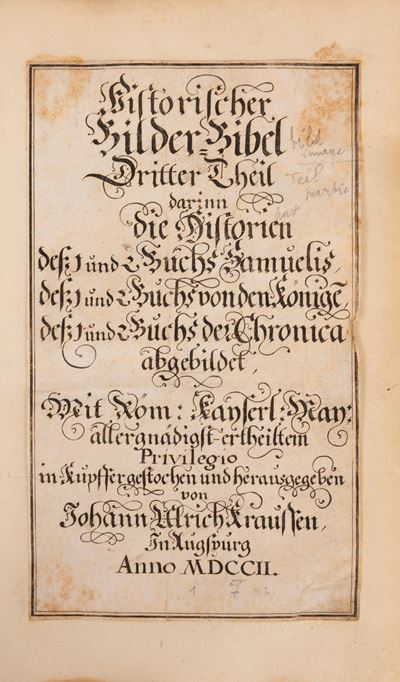 Historischer
Bilder-Bibel
Dritter Theil
darinn
die Historien
deß 1 und 2 Buchs Samuelis,
deß 1 und 2 Buchs von den Königē,
deß 1 und 2 Buchs der Chronica
abgebildet,
Mit Röm: Kayserl: May:
allergnädigst ertheiltem
Privilegio
in Kupffer gestochen und herausgegeben
von
Johann Ulrich Kraussen,
In Augspurg
Anno MDCCII.
bild
image
Teil
partie
part
1702